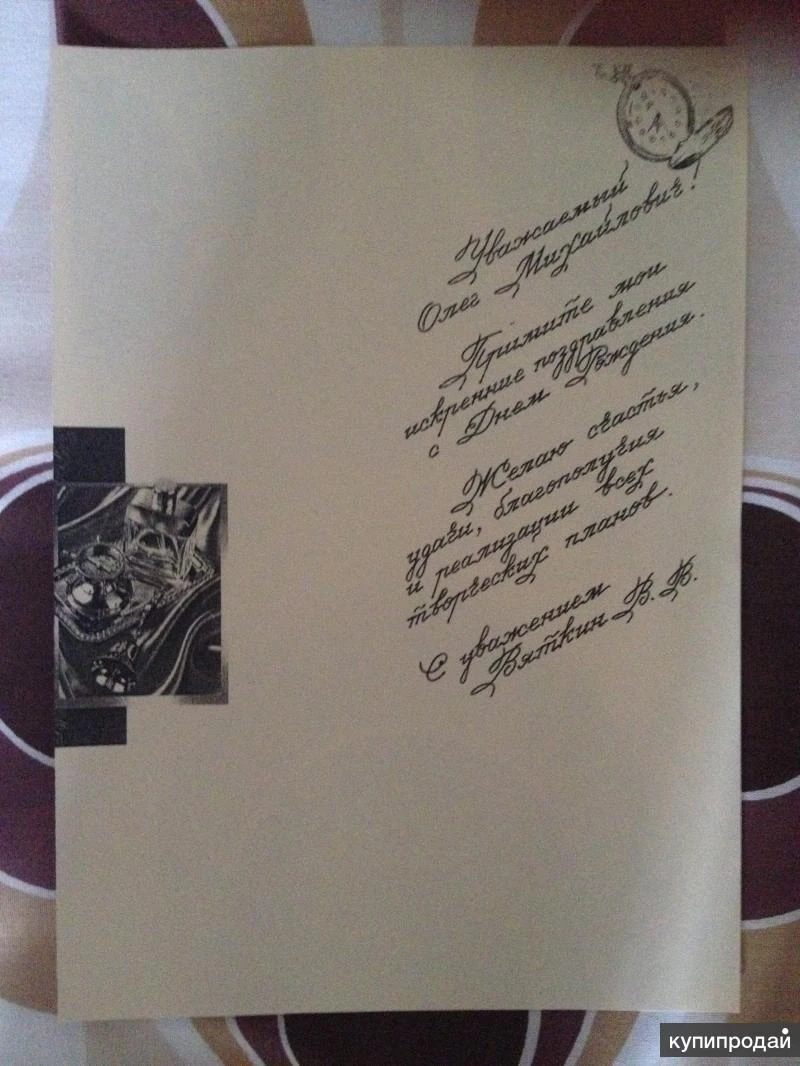 Уважаемый
Олег Михайлович!
Примите мои
искренние поздравления
с Днем Рождения.
Желаю счастья,
удачи, благополучия
и реализации всех
творческих планов.
С уважением
Вяткин В. В.
купипродай